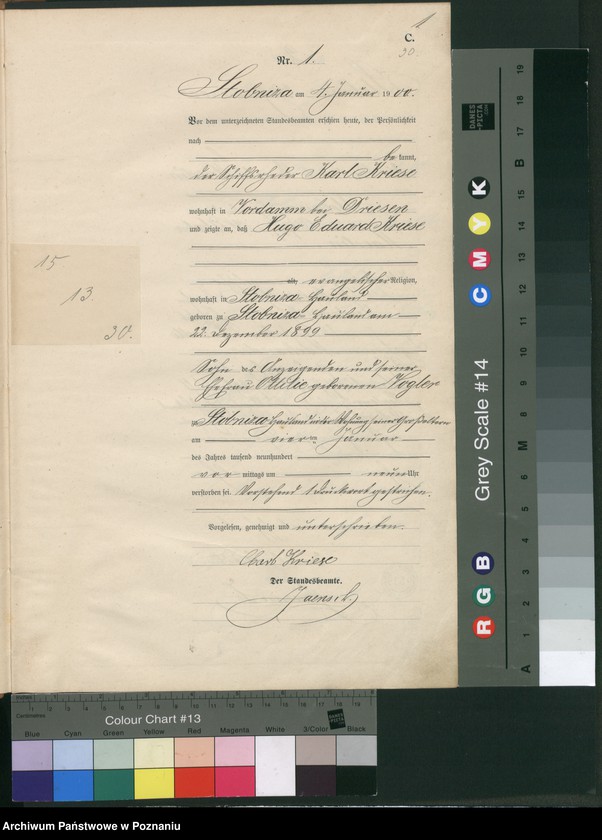 1
C.
30.
Nr. 1.
Slobniza am 4. Januar 1900.
Vor dem unterzeichneten Standesbeamten erschien heute, der Persönlichkeit
nach
bekannt,
der Schiffsrheder Karl Kriese
wohnhaft in Vordamm bei Driesen
und zeigte an, daß Hugo Eduard Kriese
alt, evangelischer Religion,
wohnhaft in Slobniza Hauland
geboren zu Slobniza Hauland am
22. Dezember 1899
Sohn des Anzeigenden und seiner
Ehefrau Ottilie geborenen Vogler
zu Slobniza Hauland in der Wohnung seiner Großeltern
am vierten Januar
des Jahres tausend neunhundert
vor mittags um neun Uhr
verstorben sei. Vorstehend 1 Druckwort gestrichen.
Vorgelesen, genehmigt und unterschrieben.
Karl Kriese
Der Standesbeamte.
Jaensch
15
13.
30.
Grey Scale #14
C M Y K
R G B
A 1 2 3 4 5 6 M 8 9 10 11 12 13 14 15 B 17 18 19
DANES
PICTA
.COM
Centimetres
1 2 3 4 5 6 7 8 9 10 11 12 13 14 15 16 17 18 19
Colour Chart #13
Blue Cyan Green Yellow Red Magenta White 3/Color Black
Archiwum Państwowe w Poznaniu